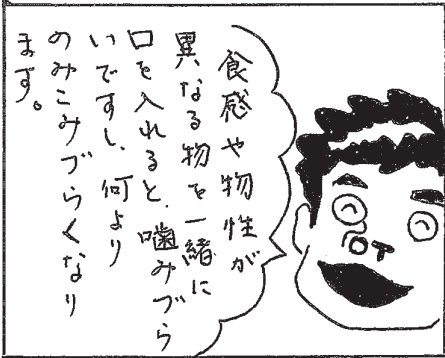 食感や物性が
異なる物を一緒に
口を入れると、噛みづら
いですし、何より
のみこみづらくなり
ます。
OT